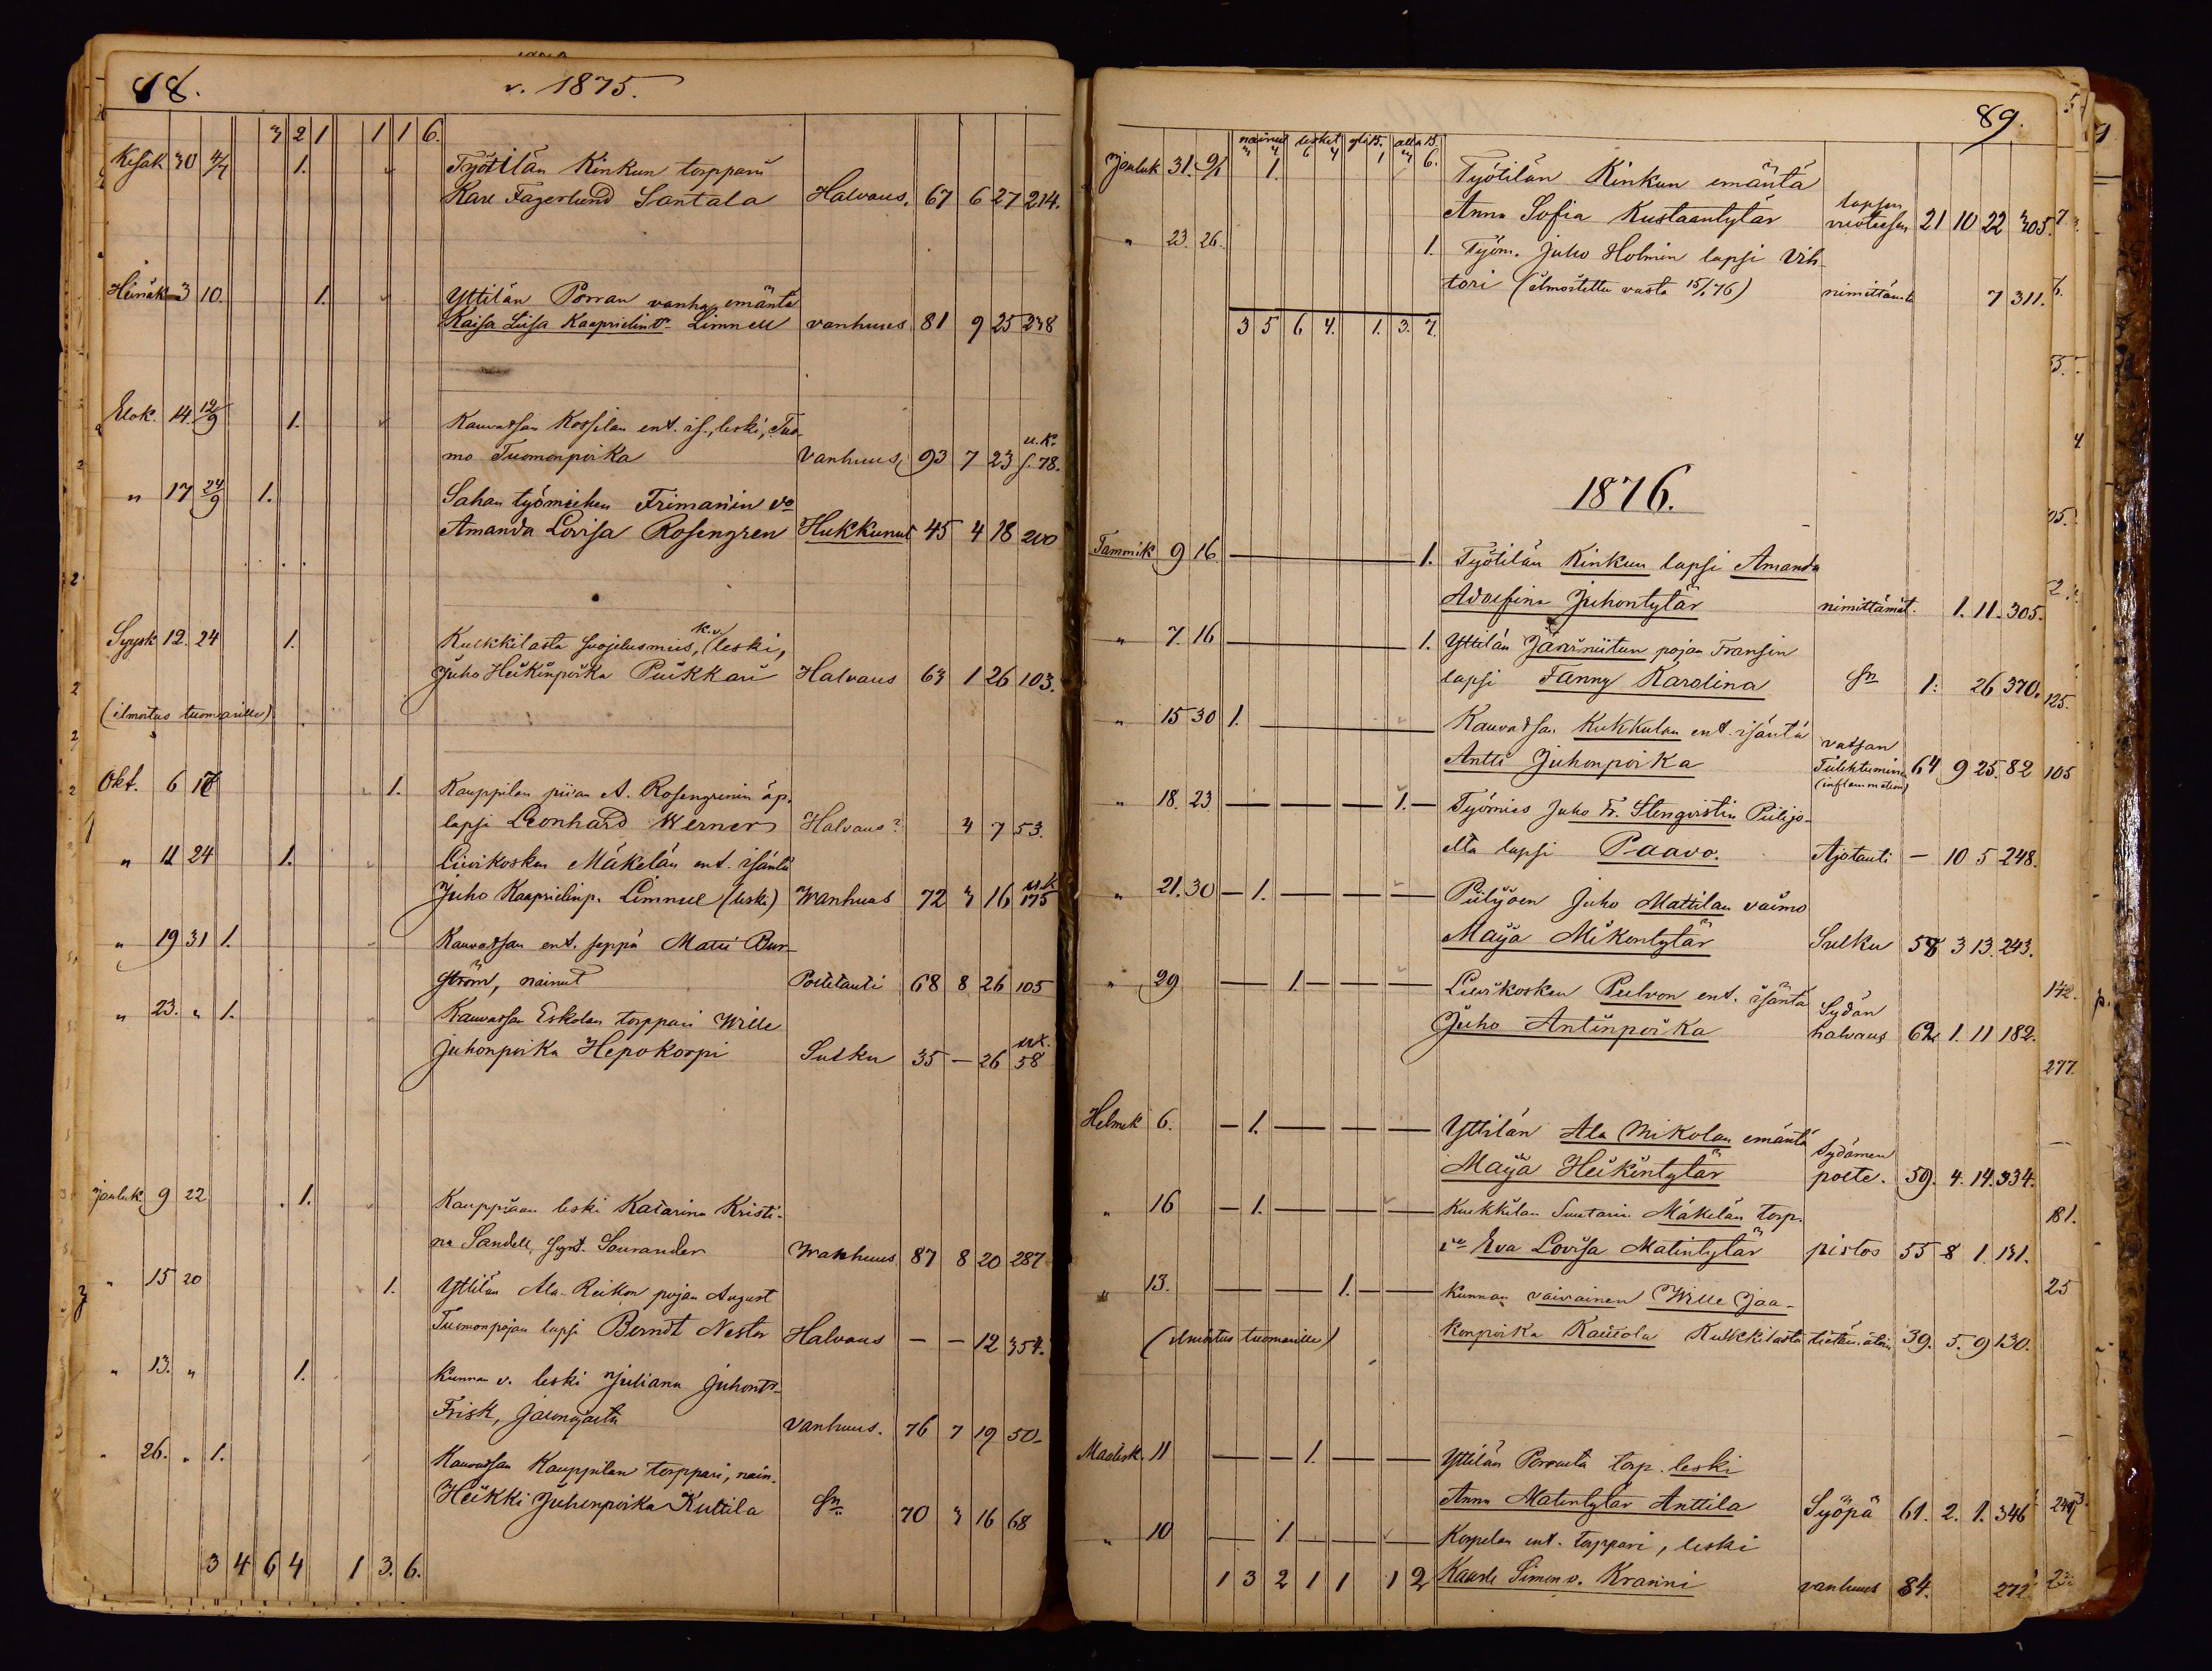 88.
v. 1875.
3 2 1 1 1 6.
Kesäk 30 4/7 1. Työtilän Kinkun torppari
Karl Fagerlund Santala Halvaus. 67 6 27 214.
Heinäk 3 10. 1. Yttilän Porran vanha emäntä
Kaisa Liisa Kaaprielin tr Limnell vanhuus 81 9 25 238
Elok. 14. 12/9 1. Kauvatsan Kossilan ent. is., leski, Tuo-
mo Tuomonpoika Vanhuus, 93 7 23 u.k. s. 78.
" 17 24/9 1. Sahan työmiehen Frimanin vo
Amanda Lovisa Rosengren Hukkunut 45 4 18 200
Syysk 12. 24 1. Kulkkilasta suojelusmies, k.v. (leski,
Juho Heikinpoika Puikkari Halvaus 63 1 26 103.
(ilmoitus tuomarille)
Okt. 6 17 1. Kauppilan piian A. Rosengrenin äp.
lapsi Leonhard Werner Halvaus? 3 7 53.
" 11 24 1. Liivikosken Mäkelän ent. isäntä
Juho Kaaprielinp. Limnell (leski) Wanhuus 72 3 16 u.k 175
" 19 31 1. Kauvatsan ent. seppä Matti Bur-
ström, nainut Poltetauti 68 8 26 105
" 23. " 1. Kauvatsan Eskolan torppari Wille
Juhonpoika Hepokorpi Sulku 35 – 26 uk. 58
Jouluk 9 22 1. Kauppiaan leski Katarina Kristi-
na Sandell, synt. Sourander Wanhuus 87 8 20 287
" 15 20 1. Yttilän Ala-Reikon pojan August
Tuomonpojan lapsi Berndt Nestor Halvaus – – 12 354.
" 13. " 1. Kunnan v. leski Juliana Juhontr
Frisk, vanhuus. 76 7 19 50
" 26. " 1. Kauvatsan Kauppilan torppari, nain.
Heikki Juhonpoika Kuttila Sn 70 3 16 68
3 4 6 4 1 3. 6.
89.
nainut lesket yli 15. alla 15.
3 4 6 4 1 3 6.
Jouluk 31. 9/1 1. Työtilän Kinkun emäntä
Anna Sofia Kustaantytär lapsen vuoteesen 21 10 22 305.
" 23. 26. 1. Työm. Juho Holmin lapsi Vih-
tori (ilmoitettu vasta 15/1 76) nimittämät. 7 311.
3 5 6 4. 1. 3. 7.
1876.
Tammik 9 16 1. Työtilän Kinkun lapsi Amanda
Adolfina Juhontytär nimittämät. 1. 11. 305.
" 7. 16 1. Yttilän Järviniitun pojan Fransin
lapsi Fanny Karolina Sn 1. 26 370.
" 15 30 1. Kauvatsan Kukkulan ent. isäntä
Antti Juhonpoika vatsan Tulehtuminen (inflammation) 64 9 25. 82
" 18. 23 1. Työmies Juho Fr. Stenqvistin Piilijo-
elta lapsi Paavo. Ajotauti – 10 5 248.
" 21. 30 1. Piilijoen Juho Mattilan vaimo
Maija Mikontytär Sulku 58 3 13. 243.
" 29 1. Liivikosken Pulvon ent. isäntä
Juho Antinpoika Sydän halvaus 62 1. 11 182.
Helmik 6. 1. Yttilän Ala Mikolan emäntä
Maija Heikintytär Sydämen polte. 59. 4. 14. 334.
" 16 1. Kulkkilan Suutarin Mäkelän torp.
vo Eva Lovisa Matintytär pistos 55 8 1. 131.
" 13. 1. Kunnan vaivainen Wille Jaa-
(ilmoitus tuomarille) konpoika Kauvola Kulkkilasta 39. 5. 9 130.
Maalisk. 11 1. Yttilän Porrasta torp. leski
Anna Matintytär Anttila Syöpä 61. 2. 1. 346
" 10 1. Korpelan ent. torppari, leski
Kaarle Simon p. Kranni vanhuus 84. 272
1 3 2 1 1 1 2